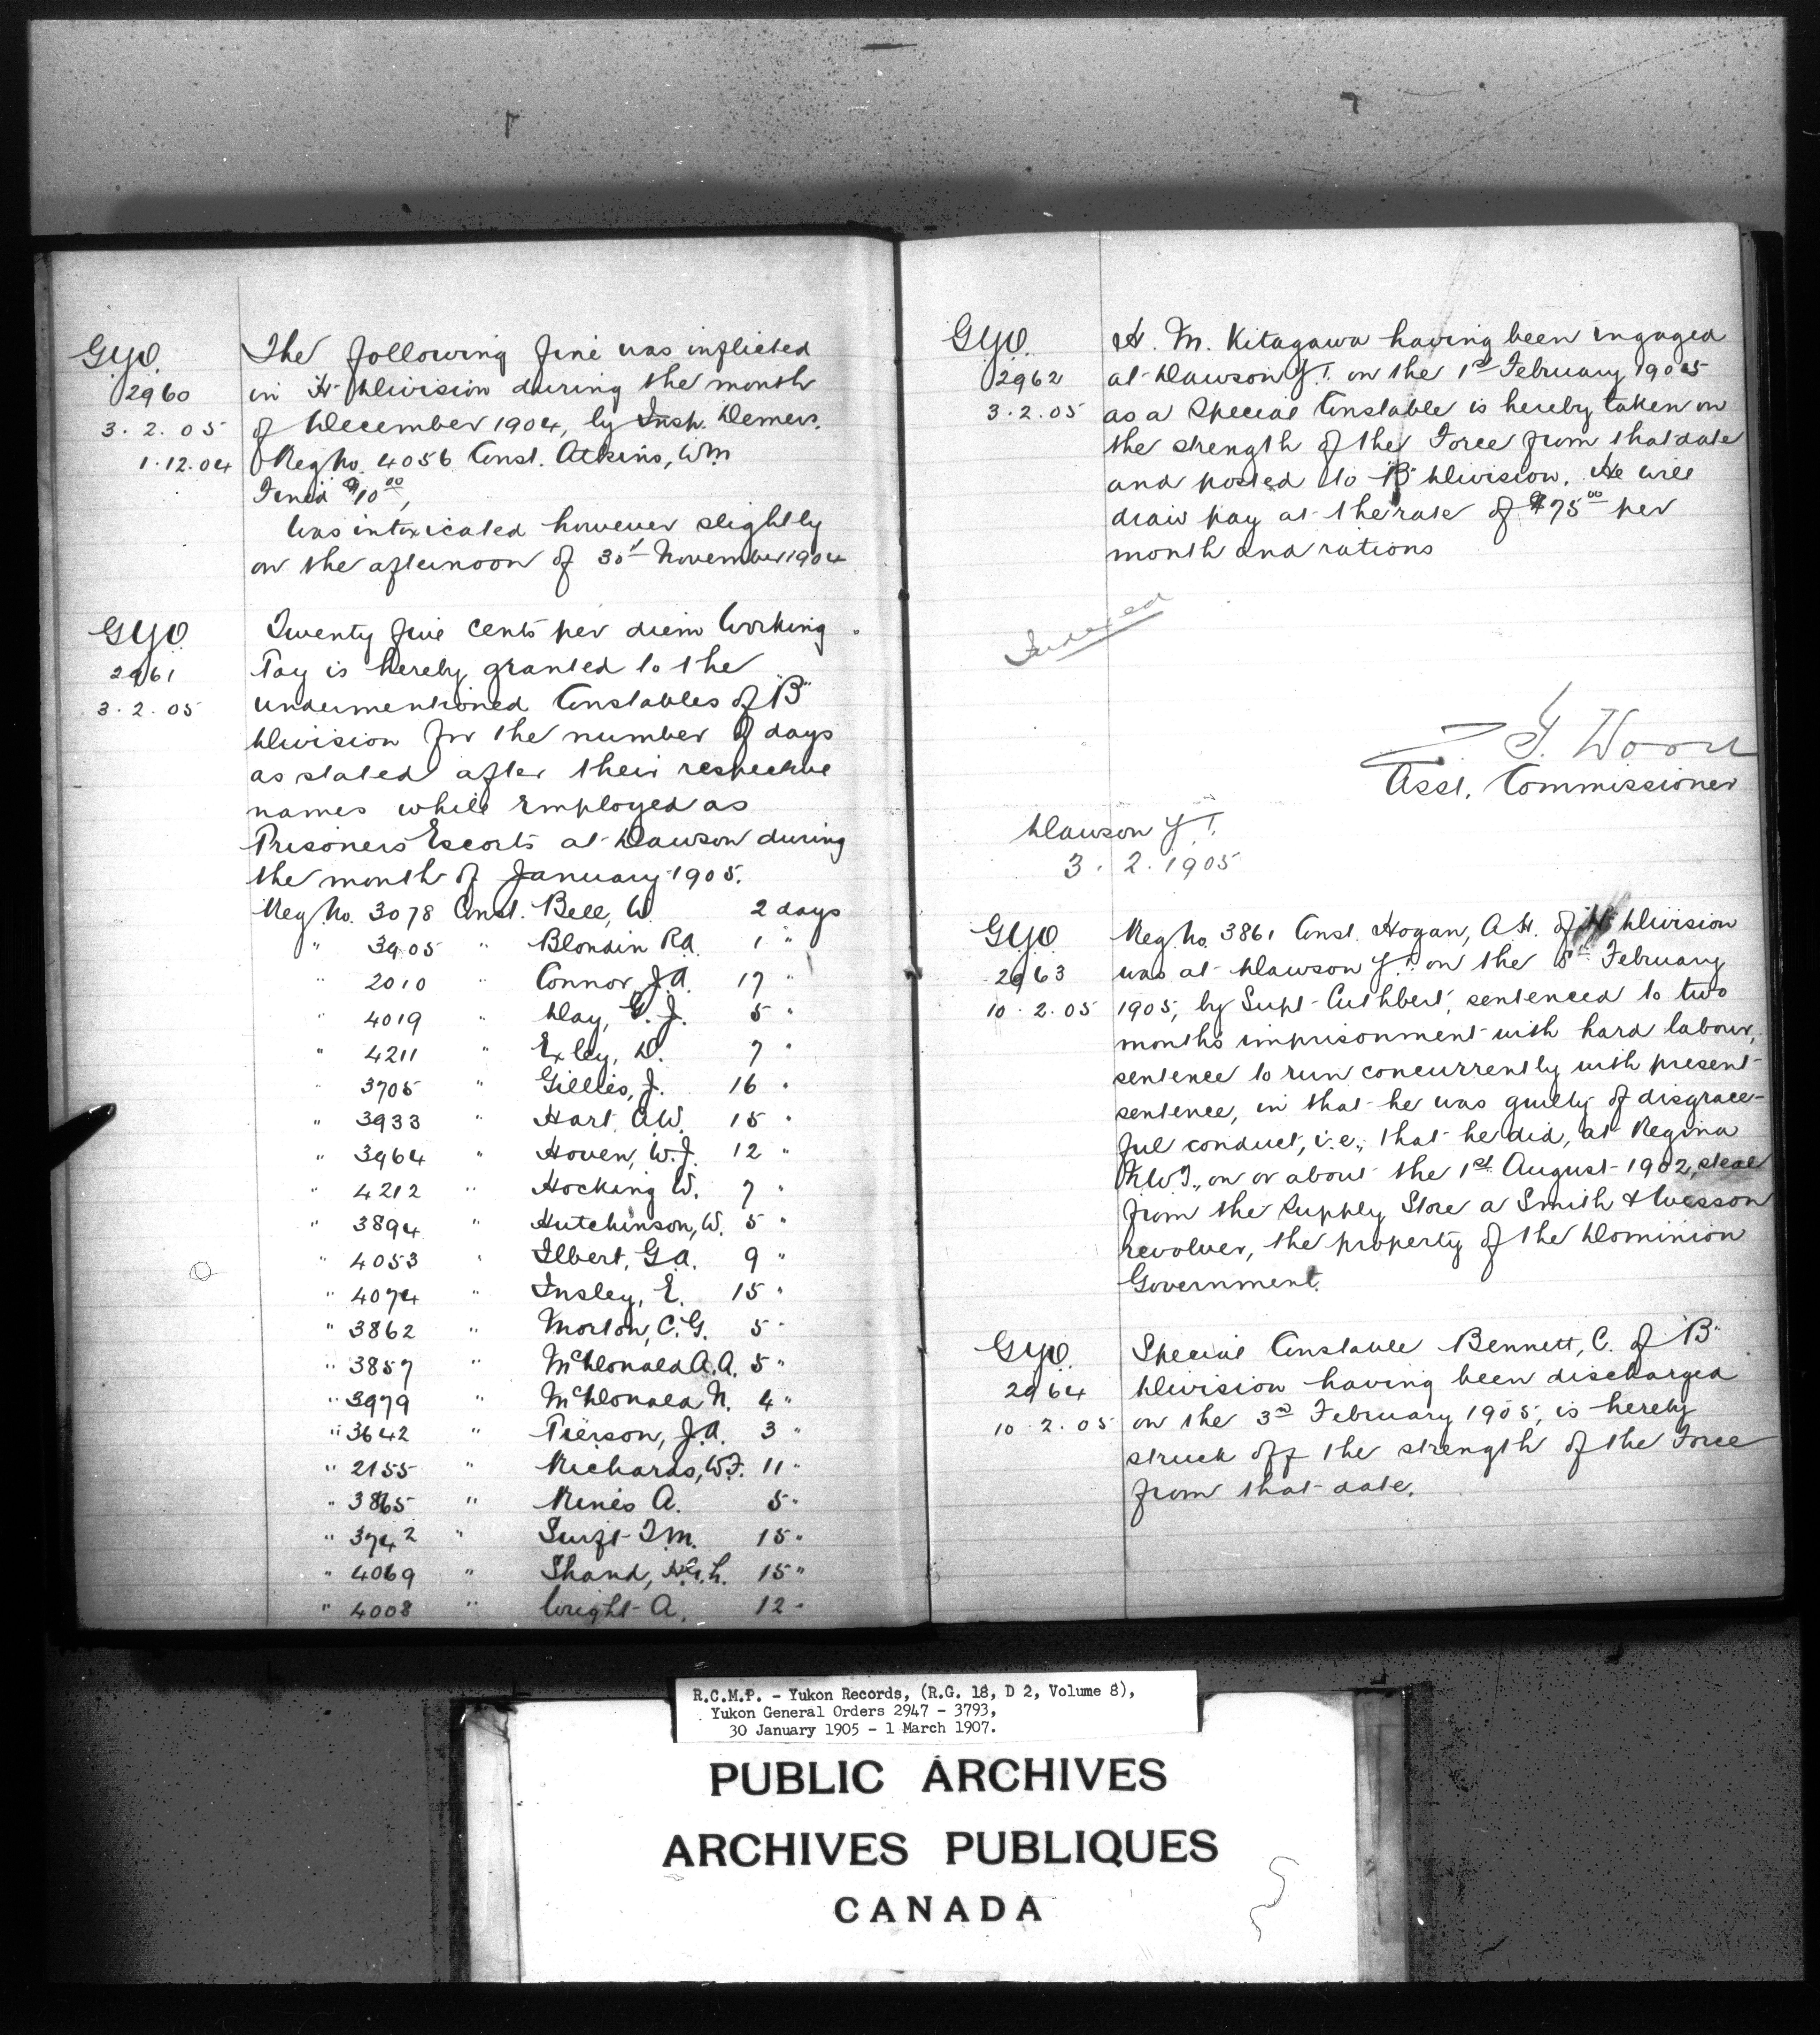 G.Y.O.
2960
3.2.05
1.12.04
The following fine was inflicted
in "H" Division during the month
of December 1904, by Insp. Demers.
Reg No. 4056 Const. Atkins, Wm
Fined $10.00,
Was intoxicated however slightly
on the afternoon of 30th November 1904
G.Y.O.
2961
3.2.05
Twenty five cents per diem Working
Pay is hereby granted to the
undermentioned Constables of "B"
Division for the number of days
as stated after their respective
names while employed as
Prisoners Escorts at Dawson during
the month of January 1905.
Reg No. 3078 Const. Bell, W. 2 days
" 3905 " Blondin R.A. 1 "
" 2010 " Connor, J.A. 17 "
" 4019 " Day, G. J. 5 "
" 4211 " Exley, D. 7 "
" 3705 " Gillis, J. 16 "
" 3933 " Hart, A.W. 15 "
" 3964 " Hoven, W.J. 12 "
" 4212 " Hocking W. 7 "
" 3894 " Hutchinson, W. 5 "
" 4053 " Ilbert, G.A. 9 "
" 4074 " Insley, E. 15 "
" 3862 " Morton, C.G. 5 "
" 3857 " McDonald A.A. 5 "
" 3979 " McDonald N. 4 "
" 3642 " Pierson, J.A. 3 "
" 2155 " Richards, W.F. 11 "
" 3865 " Rines A. 5 "
" 3742 " Swift T.M. 15 "
" 4069 " Shand, H.G.L. 15 "
" 4008 " Wright A. 12 "
G.Y.O.
2962
3.2.05
H. M. Kitagawa having been engaged
at Dawson Y.T. on the 1st February 1905
as a Special Constable is hereby taken on
the strength of the Force from that date
and posted to "B" Division. He will
draw pay at the rate of $75.00 per
month and rations
Indexed
Z. T. Wood
Asst. Commissioner
Dawson Y.T.
3.2.1905
G.Y.O.
2963
10.2.05
Reg No. 3861 Const. Hogan, A.H. of "H" Division
was at Dawson Y.T. on the 8th February
1905, by Supt Cuthbert, sentenced to two
months imprisonment with hard labour,
sentence to run concurrently with present
sentence, in that he was guilty of disgrace-
ful conduct, i.e., that he did, at Regina
N.W.T., on or about the 1st August 1902, steal
from the Supply Store a Smith & Wesson
revolver, the property of the Dominion
Government.
G.Y.O.
2964
10.2.05
Special Constable Bennett, C. of "B"
Division having been discharged
on the 3rd February 1905, is hereby
struck off the strength of the Force
from that date.
R.C.M.P. - Yukon Records, (R.G. 18, D 2, Volume 8),
Yukon General Orders 2947 - 3793,
30 January 1905 - 1 March 1907.
PUBLIC ARCHIVES
ARCHIVES PUBLIQUES
CANADA